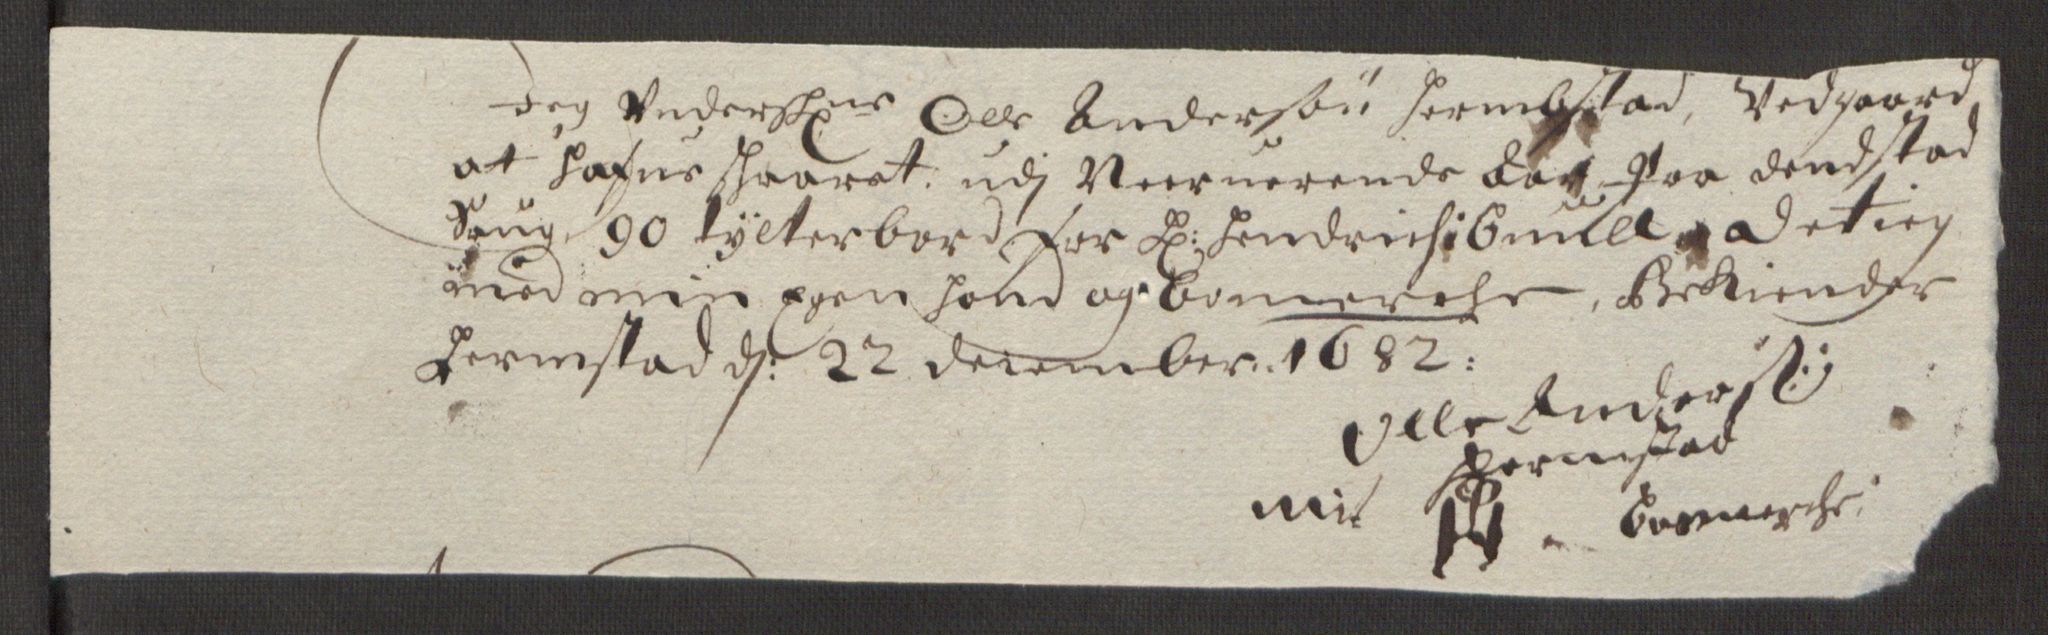 Jeg Underschne Olle Andersøn Hermbstad, Vedgaard
at hafue schaaret udj Neeruerende aar paa dend stad
Saug, 90 tÿlter bord for H: Hendrich Guult, det ieg
med min egen hand og bomerche, Bekiender
Hermstad dj: 22 december: 1682:
Olle Anders
Hermstad
mit bomerche